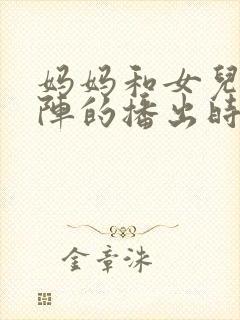 妈妈和女兒
陣的播出時
金章洙